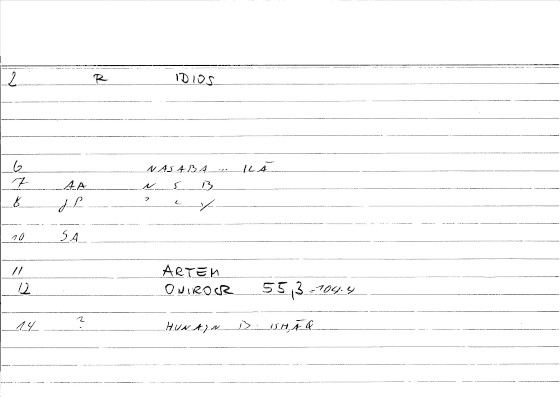 2 R IDIOS
6 NASABA ... ILĀ
7 AA N S B
8 JP
10 SA
11 ARTEM
12 ONIROCR 55,3 = 104.4
14 ? HUNAIN B. ISḤĀQ